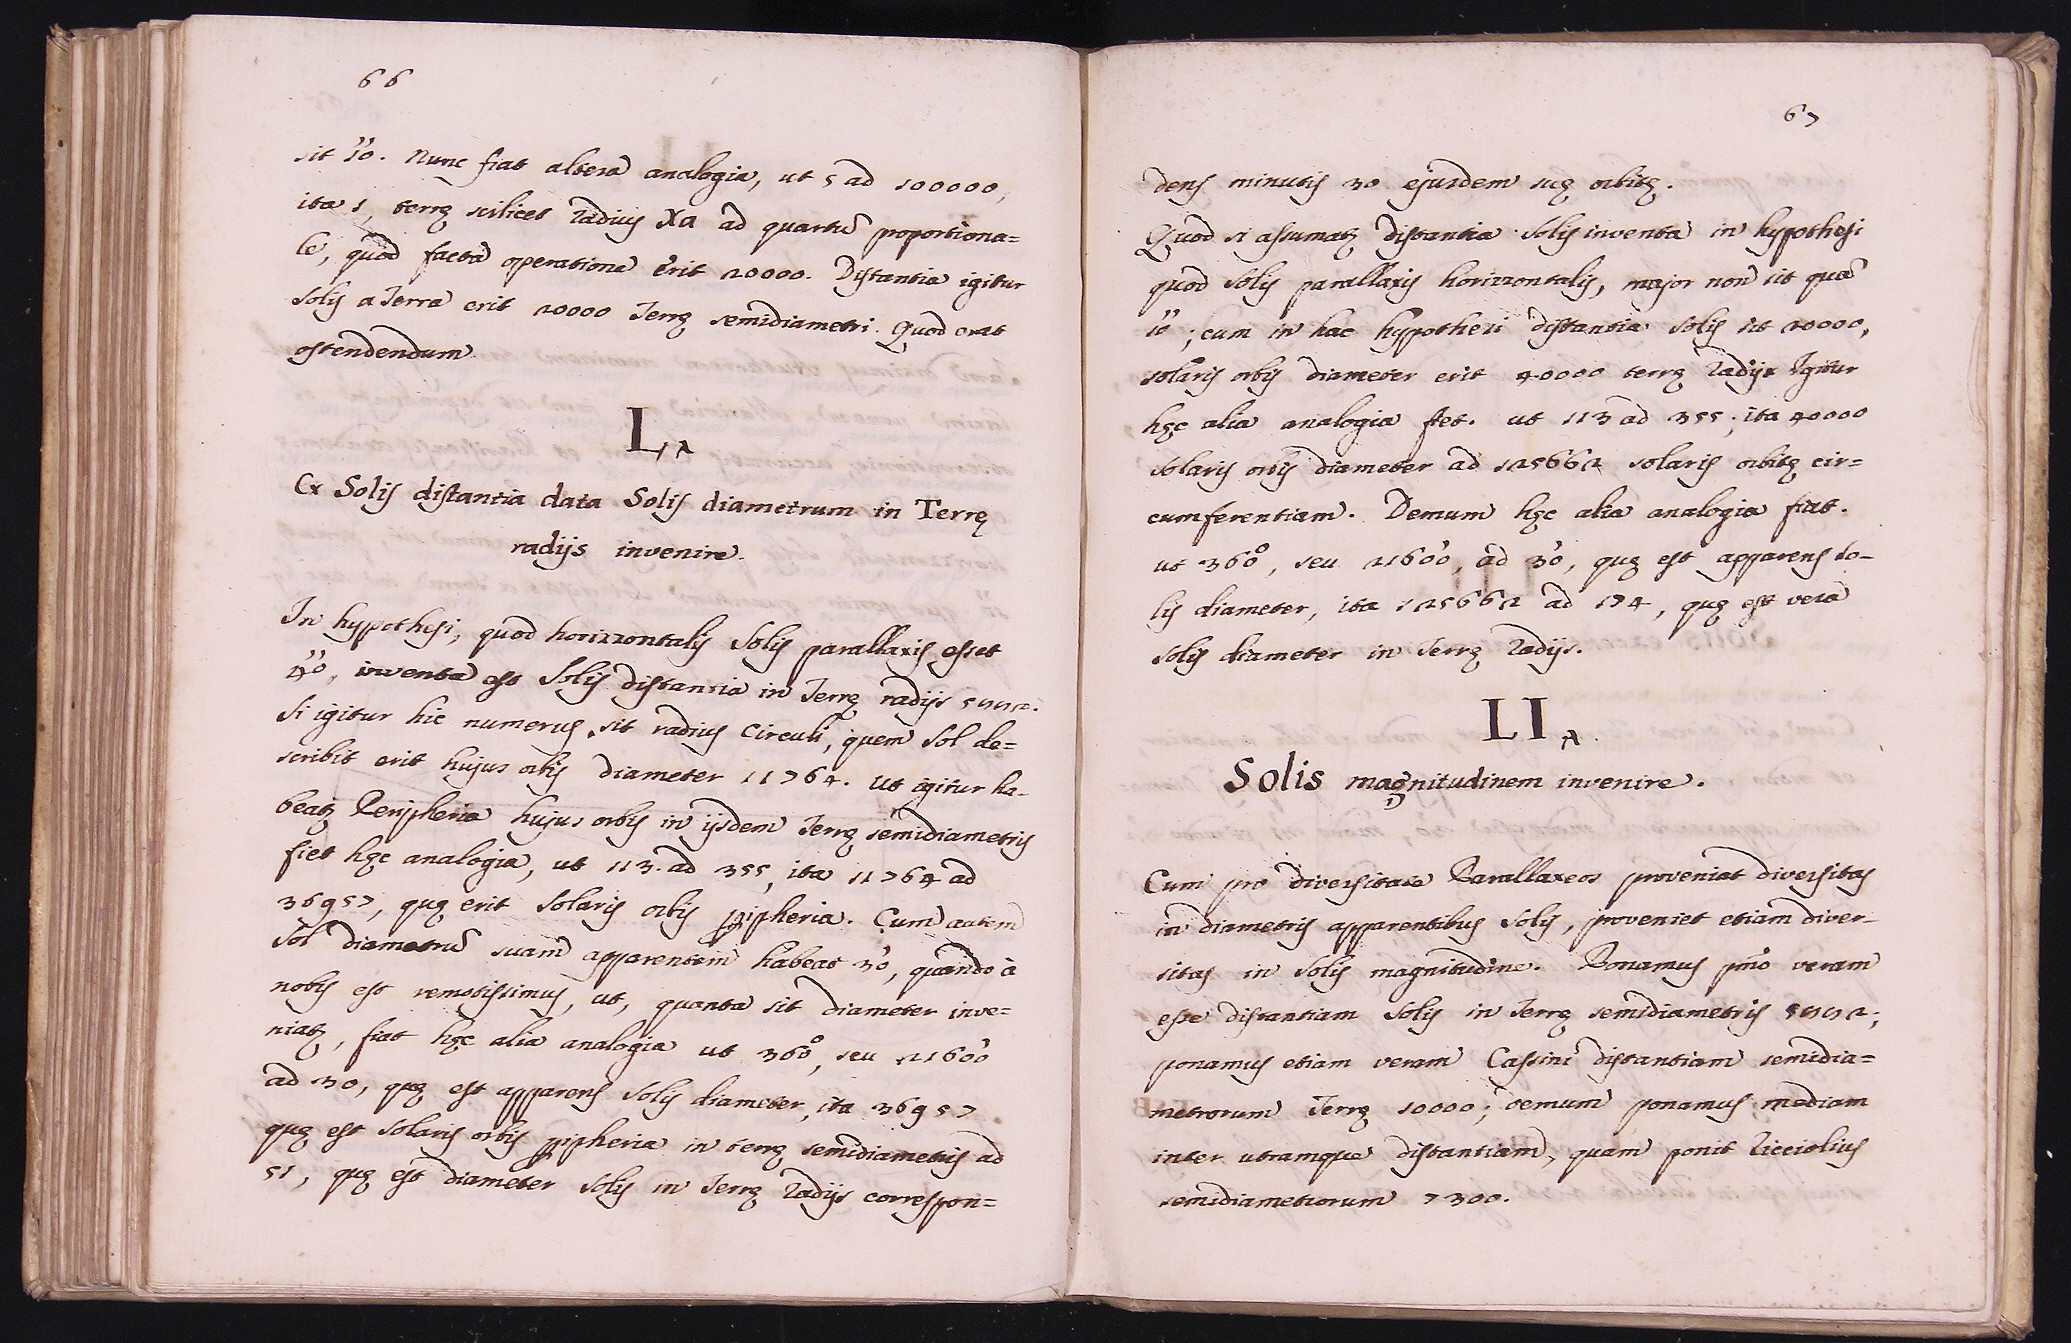 66
sit 10". Nunc fiat altera analogia, ut 5 ad 100000,
ita 1, terrę scilicet Radius Xa ad quartũ proportiona=
le, quod facta operatione erit 20000. Distantia igitur
Solis a Terra erit 20000 Terrę semidiametri. Quod erat
ostendendum.
L.a
Ex Solis distantia data Solis diametrum in Terrę
radijs invenire.
In hypothesi, quod horizzontalis Solis parallaxis esset
40", inventa est Solis distantia in Terrę radijs
Si igitur hic numerus sit radius Circuli, quem Sol de=
scribit erit hujus orbis diameter 11764. Ut igitur ha-
beatꝫ Peripheria hujus orbis in ijsdem Terrę semidiametris
fiet hęc analogia, ut 113. ad 355, ita 11764 ad
36957, quę erit Solaris orbis ꝑipheria. Cum autem
Sol diametrũ suam apparentem habeat 30', quando à
nobis est remotissimus, ut, quanta sit diameter inve=
niatꝫ, fiat hęc alia analogia ut 360°, seu 21600'
ad 30, quę est apparens Solis diameter, ita 36957
quę est Solaris orbis ꝑipheria in terrę semidiametris ad
51, quę est diameter Solis in Terrę Radijs correspon=
67
dens minutis 30 ejusdem suę orbitę.
Quod si assumatꝫ distantia Solis inventa in hypothesi
quod Solis parallaxis horizzontalis, major non sit quã
10"; cum in hac hypothesi distantia Solis sit 20000,
solaris orbis diameter erit 40000 terrę Radijs Igitur
hęc alia analogia fiet. ut 113 ad 355; ita 40000
solaris orbis diameter ad 125662 solaris orbitę cir=
cumferentiam. Demum hęc alia analogia fiat.
ut 360°, seu 21600', ad 30', quę est apparens So-
lis diameter, ita 125662 ad 174, quę est vera
Solis diameter in Terrę Radijs.
LI.a
Solis magnitudinem invenire.
Cum pro diversitate Parallaxeos proveniat diversitas
in diametris apparentibus Solis, proveniet etiam diver-
sitas in Solis magnitudine. Ponamus pm̃o veram
esse distantiam Solis in Terrę semidiametris
ponamus etiam veram Cassini distantiam semidia=
metrorum Terrę 20000; demum ponamus mediam
inter utramque distantiam, quam ponit Ricciolius
semidiametrorum 7300.